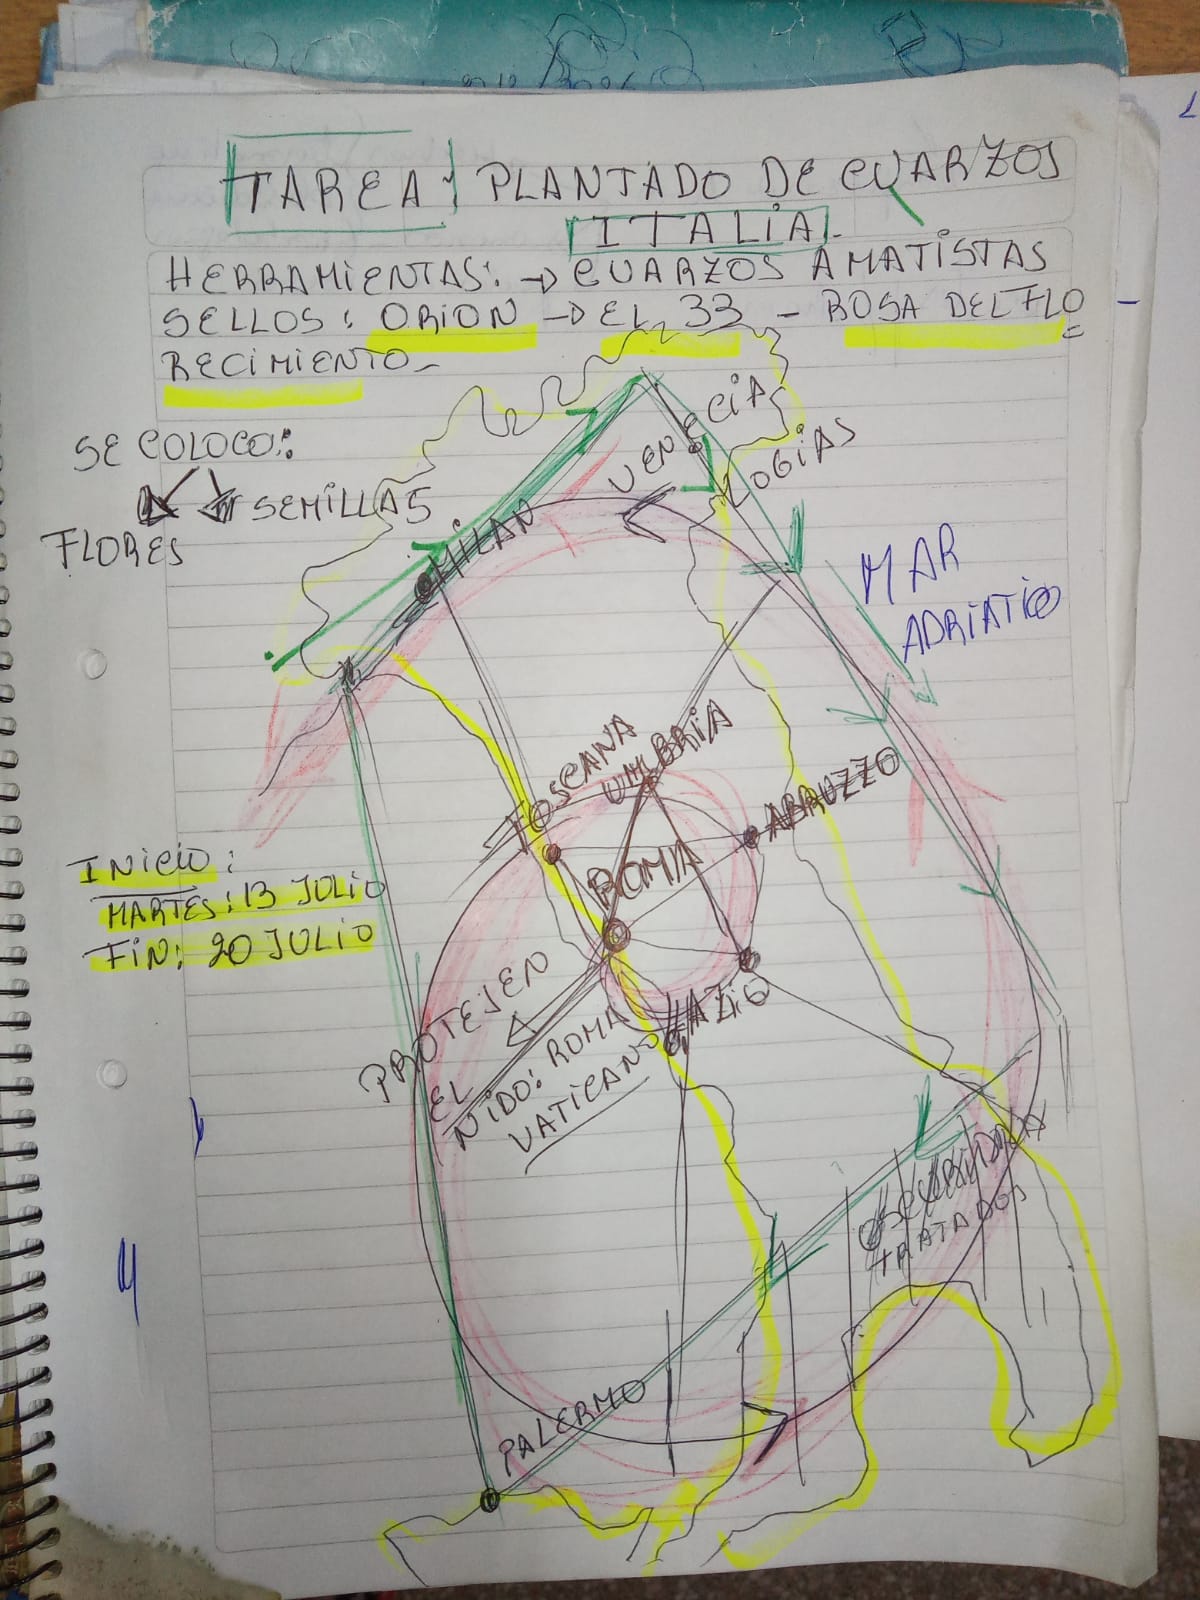 TAREA: PLANTADO DE CUARZOS
ITALIA.
HERRAMIENTAS: → CUARZOS AMATISTAS
SELLOS: ORION → EL 33 - ROSA DEL FLO
RECIMIENTO-
SE COLOCO:
SEMILLAS
FLORES
VENECIA
LOGIAS
MILAN
MAR
ADRIATICO
TOSCANA
UMBRIA
ABRUZZO
ROMA
INICIO:
MARTES: 13 JULIO
FIN: 20 JULIO
LAZIO
PROTEJEN
EL
NIDO: ROMA
VATICANO
OSCURIDAD
TRATADOS
PALERMO